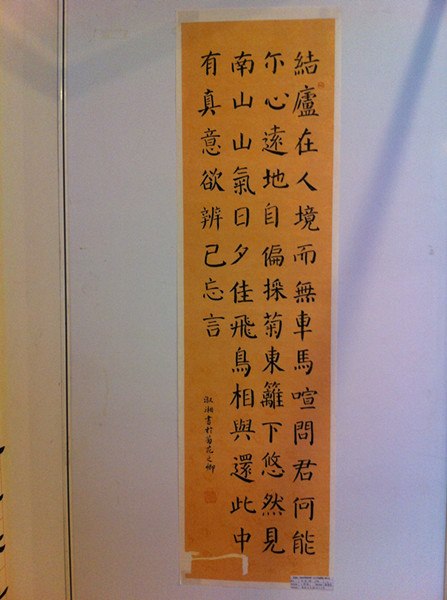 結廬在人境而無車馬喧問君何能
尒心遠地自偏採菊東籬下悠然見
南山山氣日夕佳飛鳥相與還此中
有真意欲辨已忘言
淑湘書於菊花之鄉